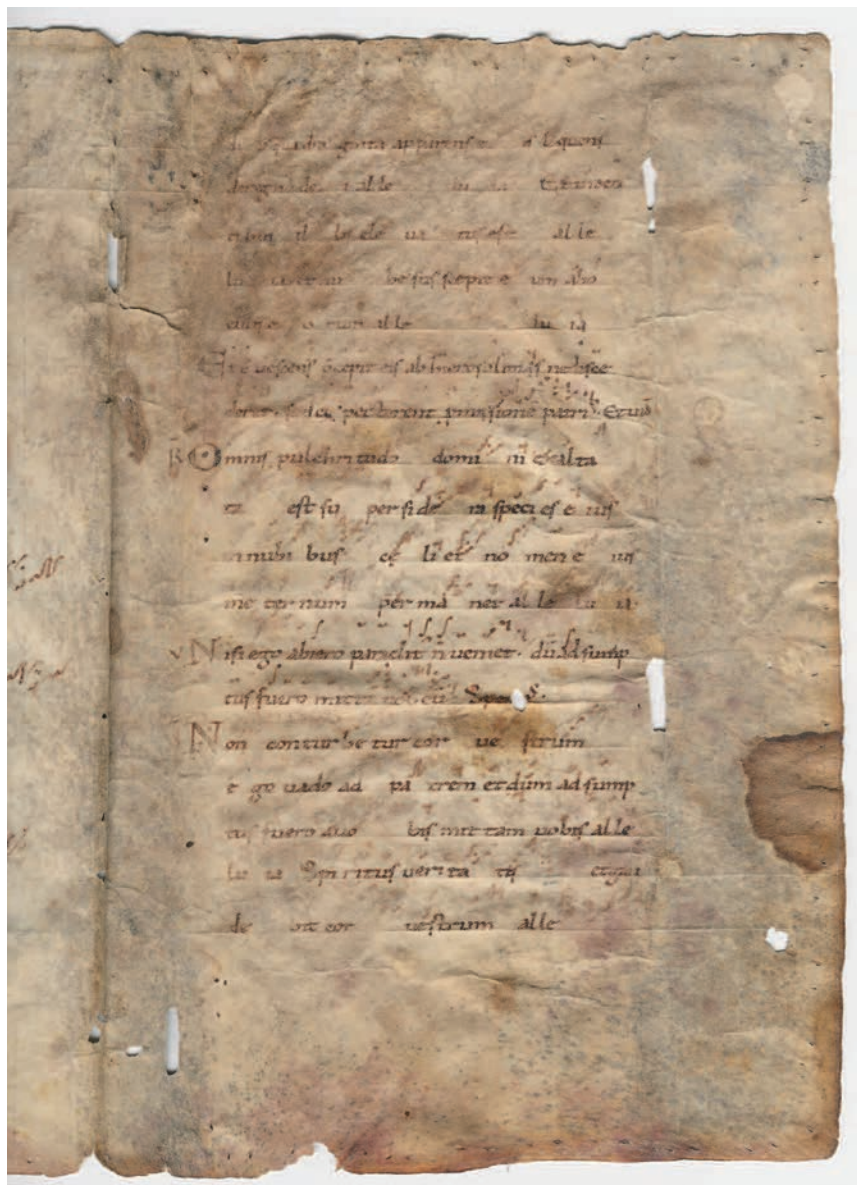 quadra ginta apparens e is loquens
de regno de i alle lu ia
tibus il lis ele ua tus est alle
lu ia et nu bes suscepit e um abo
culis e o rum alle lu ia
uescens precepit eis ab hierosolimis ne disce
derent sed expectarent promissione patris Et uid
R Omnis pulchritudo domi ni exalta
ta est su per side ra species e ius
in nubi bus ce li et no men e ius
in e ternum per ma net al le lu ia
V Nisi ego abiero paraclit n ueniet. dū adsump
tus fuero mittā
Non conturbe tur cor ue strum
e go uado ad pa trem et dum adsump
tus fuero auo bis mit tam uobis alle
lu ia Spiritus uerita tis etgau
de bit cor uestrum alle